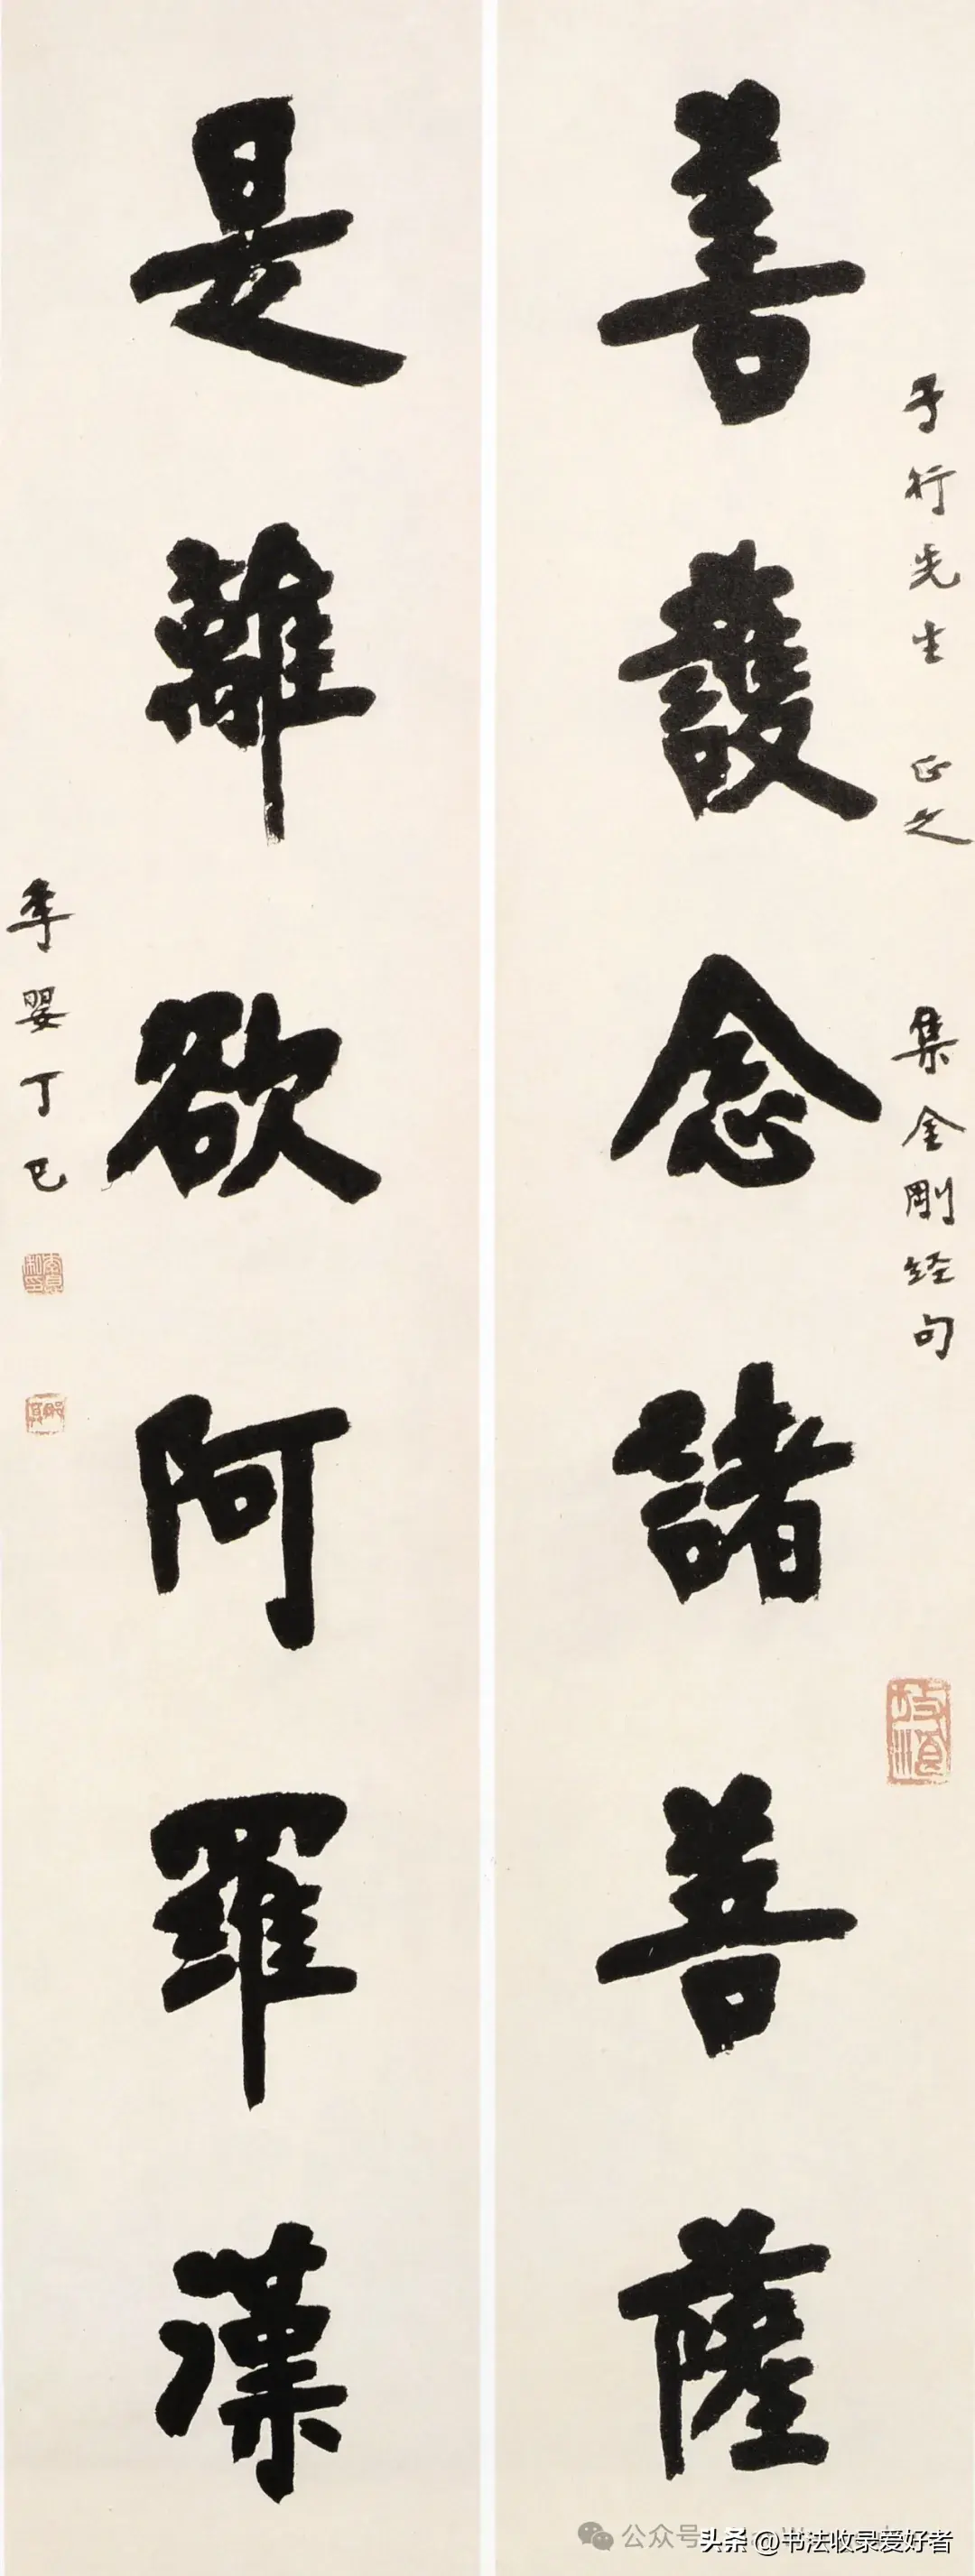 善護念諸菩薩
子行先生 正之 集金剛经句
是離欲阿羅漢
季嬰丁巳
公众号
头条 @书法收录爱好者